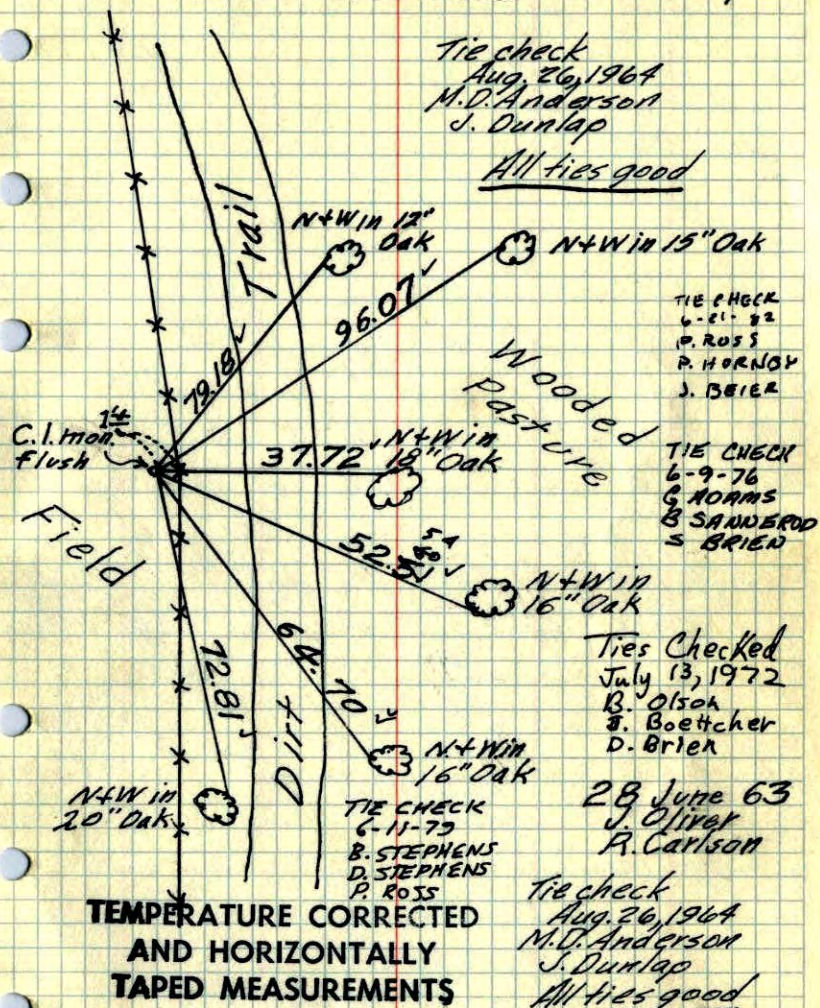 Tie check
Aug. 26, 1964
M.D. Anderson
J. Dunlap
All ties good
Trail
N+W in 12"
Oak
N+W in 15" Oak
79.18 ✓
96.07 ✓
TIE CHECK
P. ROSS
P. HORNBY
J. BEIER
Wooded
Pasture
C.I. mon.
flush
37.72 ✓
N+W in
18" Oak
TIE CHECK
6-9-76
G ADAMS
B SANNEROD
S BRIEN
Field
N+W in
16" Oak
Ties Checked
July 13, 1972
B. Olson
Boettcher
D. Brien
72.81 ✓
64.70 ✓
Dirt
N+W in
16" Oak
N+W in
20" Oak
TIE CHECK
B. STEPHENS
D. STEPHENS
P. ROSS
28 June 63
J. Oliver
R. Carlson
TEMPERATURE CORRECTED
AND HORIZONTALLY
TAPED MEASUREMENTS
Tie check
Aug. 26, 1964
M.D. Anderson
J. Dunlap
All ties good